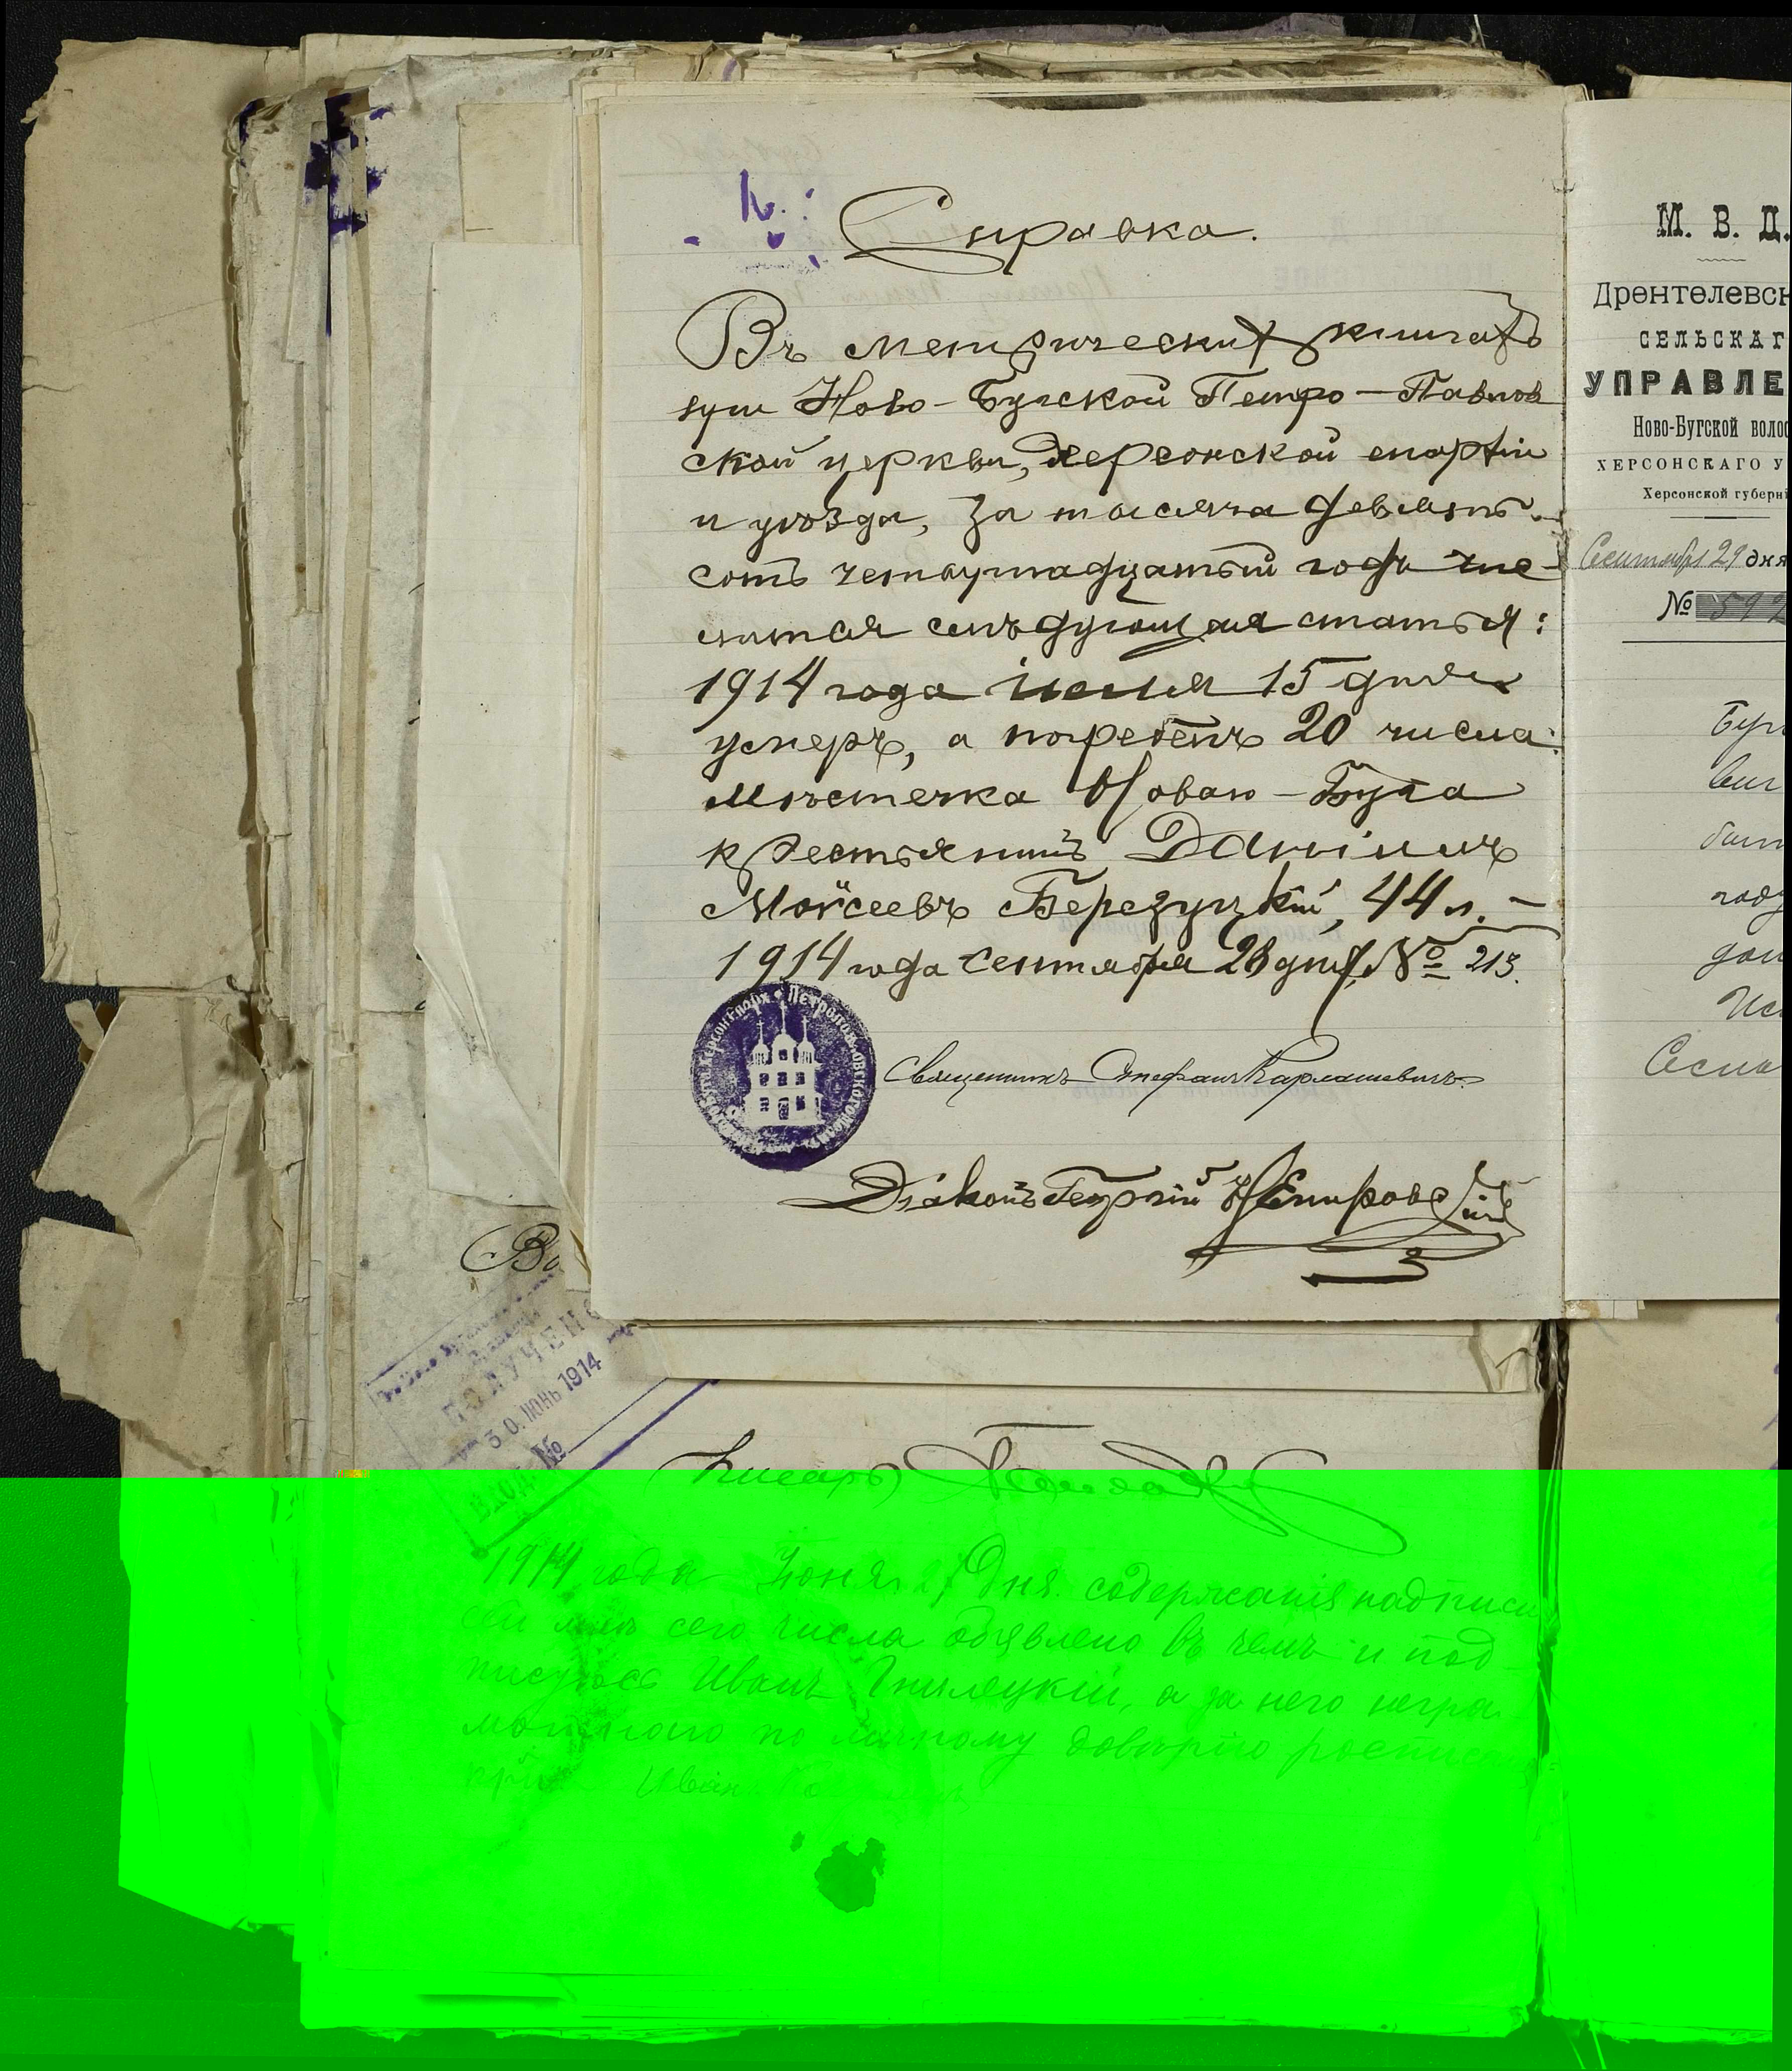 Справка.
Въ метрическихъ книгахъ
Ново-Бугской Петро-Павлов
ской церкви, Херсонской епархіи
и уѣзда, за тысяча девять-
сотъ четырнадцатый годъ чис-
лится слѣдующая статья:
1914 года іюля 15 дня
умеръ, а погребенъ 20 числа:
Мѣстечка Новаго-Буга
крестьянинъ Даніилъ
Моѵсеевъ Березуцкій, 44 л. –
1914 года сентября 28 дня, № 213.
Священникъ Стефанъ Карлашевичъ.
Діаконъ Георгій
М. В. Д.
Дрентелевск
СЕЛЬСКАГ
УПРАВЛЕ
Ново-Бугской волос
ХЕРСОНСКАГО У
Херсонской губерні
Сентября 29 дня
№ 592
Буг
Во
ПОЛУЧЕНО
30. ІЮНЬ 1914
ВХОД. №
Писарь
1914 года Іюня 27 дня. содержанія надписи
сей мнѣ сего числа объявлено въ чемъ и под
писуюсь Иванъ Гнилецкій, а за него негра
мотнаго по личному доверію росписался
Иванъ